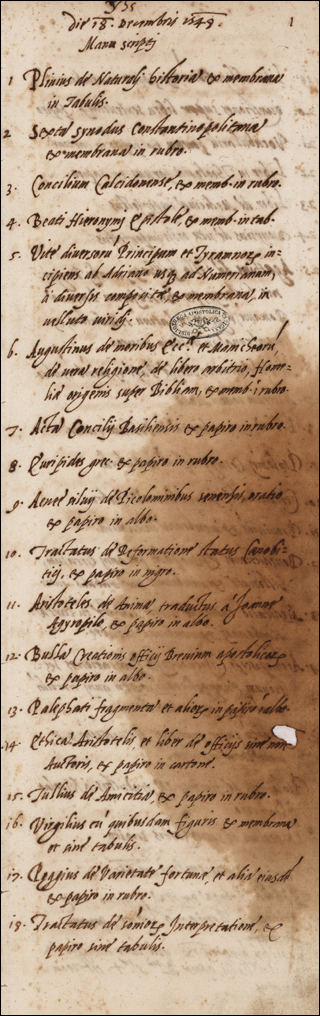 die 18. Decembris 1548.
1
Manu scripti
1 Plinius de Naturali historia ex membrana
in tabulis.
2 Sexta synodus Constantinopolitana
ex membrana in rubro.
3. Concilium Calcidonense, ex memb. in rubro.
4. Beati Hieronymi Epistolę, ex memb. in tab.
5. Vitę diversorũ Principum et Tyrannorꝝ in-
cipiens ab Adriano usqꝫ ad Numerianum,
à diversis compositę, ex membrana in
velluto viridi.
6. Augustinus de moribus Eccꝭ et Manicheorũ,
de vera religione, de libero arbitrio, Home-
lię origenis super Bibliam, ex memb. ĩ rubro.
7. Acta Concilij Basiliensis ex papiro in rubro.
8. Euripides grec. ex papiro in rubro.
9. Aeneę silvij de Picolominibus senensis oratio
ex papiro in albo.
10. Tractatus de Reformatione status Cęnobi-
tici, ex papiro in nigro.
11. Aristoteles de Anima traductus à Joanne
Argyropilo, ex papiro in albo.
12. Bulla Creationis officij Brevium apostolicorꝝ
ex papiro in albo.
13. Palephati fragmenta et aliorꝝ in papiro ĩ albo
14. Ethica Aristotelis, et liber de officijs sine nom.
Auctoris, ex papiro in cartone.
15. Tullius de Amicitia, ex papiro in rubro.
16. Virgilius cũ quibusdam figuris ex membrana
et sine tabulis.
17. Poggius de Varietate fortunę, et alia eiusdẽ
ex papiro in rubro.
18. Tractatus de somniorꝝ Interpretatione, ex
papiro sine tabulis.